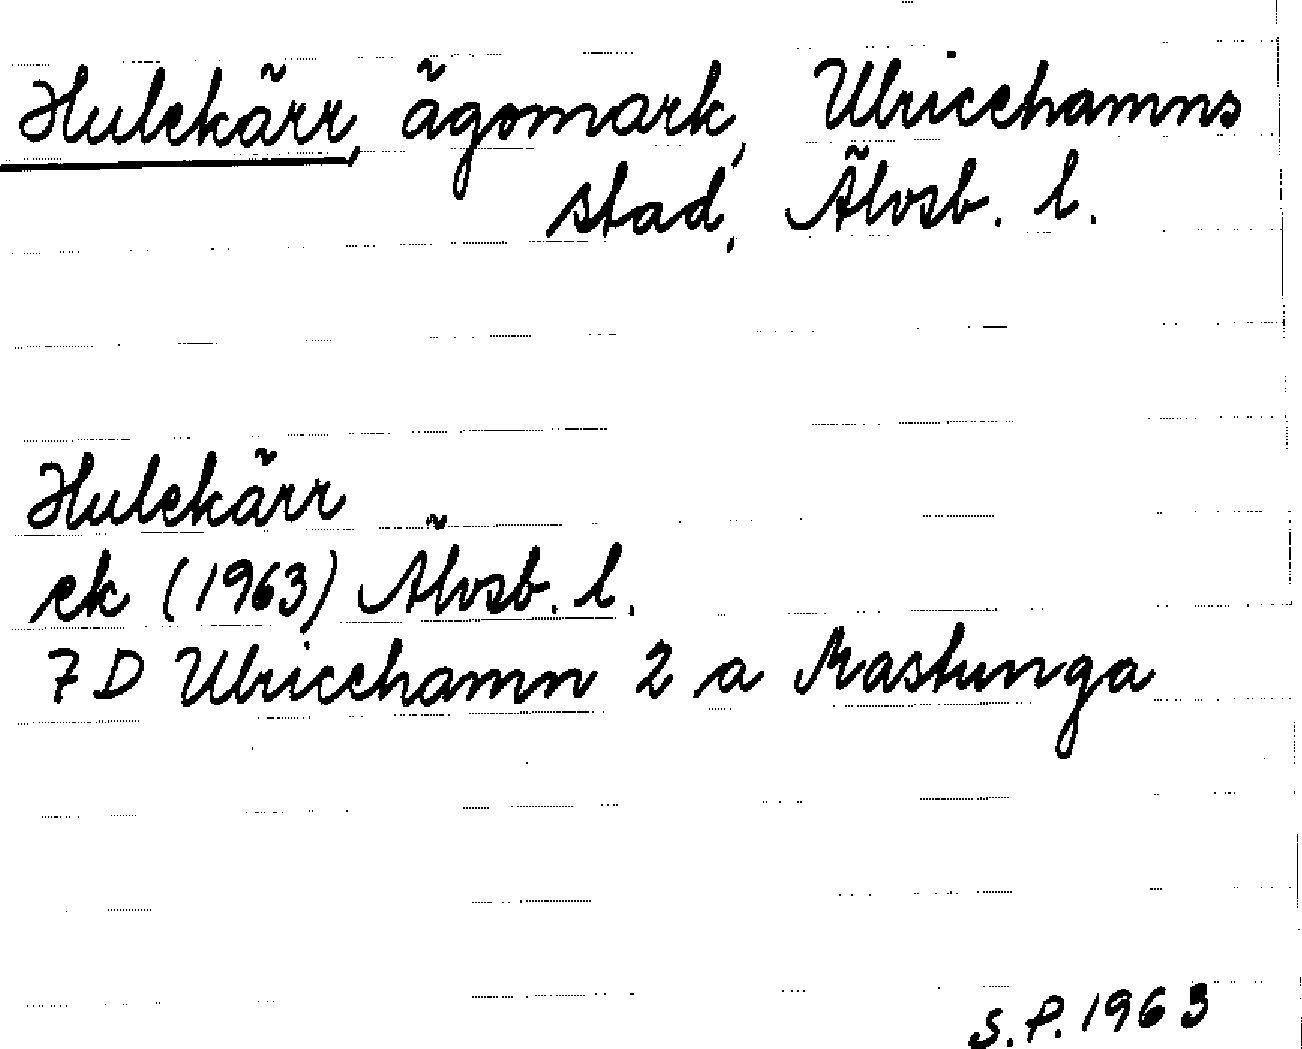 Hulekärr, ägomark, Ulricehamns
stad, Älvsb. l.
Hulekärr
ek (1963) Älvsb. l.
7 D Ulricehamn 2 a Marstunga
S.P. 1963